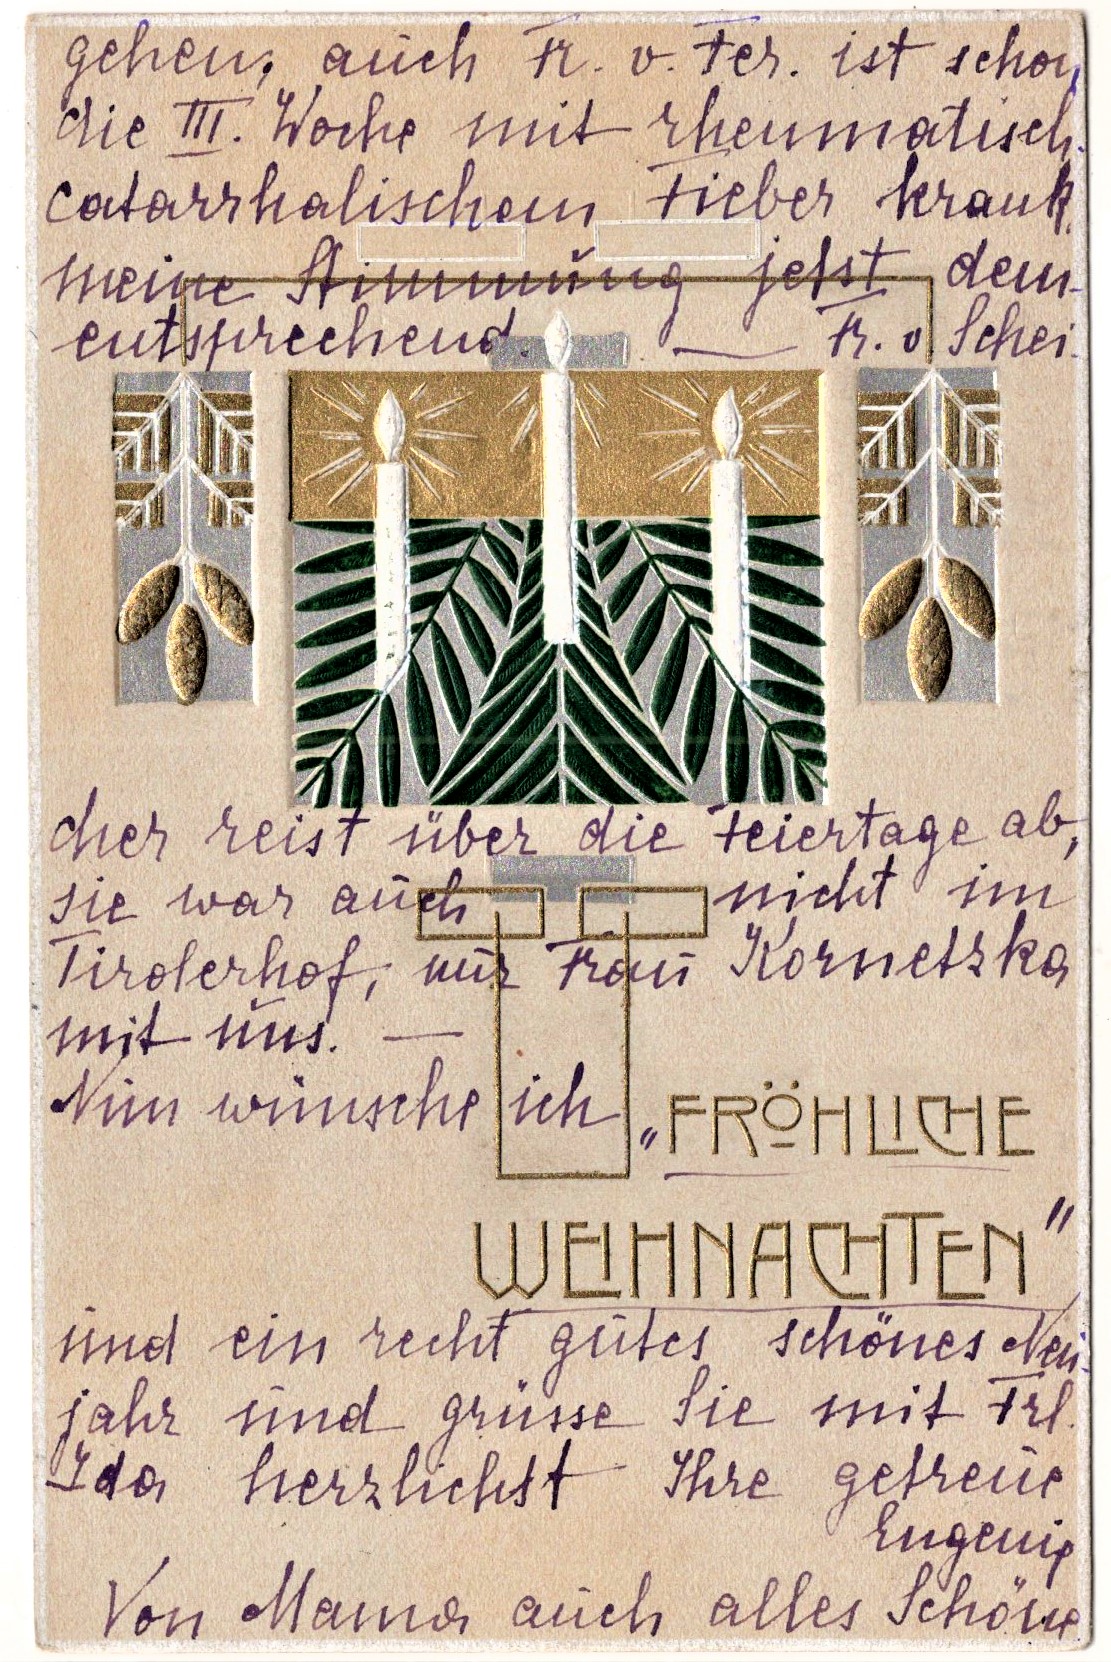 gehen; auch Fr. v. Fer. ist schon
die III. Woche mit rheumatisch-
catarrhalischem Fieber krank,
meine Stimmung jetzt dem-
entsprechend. — Fr. v Schei-
cher reist über die Feiertage ab,
sie war auch nicht im
Tirolerhof, nur Frau Kornetzka
mit uns. —
Nun wünsche ich „FRÖHLICHE
WEIHNACHTEN"
und ein recht gutes schönes Neu-
jahr und grüsse Sie mit Frl.
Ida herzlichst Ihre getreue
Eugenie
Von Mama auch alles Schöne